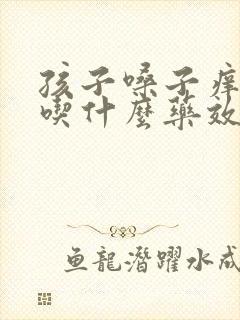 孩子嗓子痒
喫什麼藥效
魚龍潛躍水成